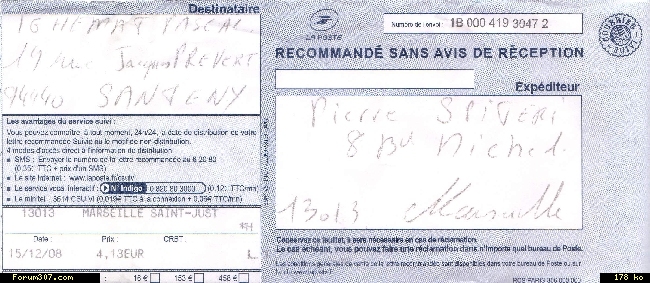 Destinataire
PASCAL
19 rue Jacques PREVERT
94440 SANTENY
Les avantages du service suivi :
Vous pouvez connaître, à tout moment, 24h/24, la date de distribution de votre
lettre recommandée Suivie ou le motif de non-distribution.
4 modes d'accès direct à l'information de distribution :
SMS : Envoyer le numéro de la lettre recommandée au 6 20 80
(0,35€ TTC + prix d'un SMS)
Le site Internet : www.laposte.fr/csuivi
Le service vous interactif : N° Indigo 0 820 80 3000 (0,12€ TTC/mn)
Le minitel : 3614 CSUIVI (0,019€ TTC à la connexion + 0,06€ TTC/mn)
13013 MARSEILLE SAINT-JUST
Date : Prix : CRBT :
15/12/08 4,13EUR
16 € 153 € 458 €
LA POSTE
Numéro de l'envoi : 1B 000 419 3947 2
RECOMMANDÉ SANS AVIS DE RÉCEPTION
Expéditeur
Pierre SPITERI
8 Bd Michel
13013 Marseille
Conservez ce feuillet, il sera nécessaire en cas de réclamation.
Le cas échéant, vous pouvez faire une réclamation dans n'importe quel bureau de Poste.
Les conditions générales de vente de la lettre recommandée sont disponibles dans votre bureau de Poste ou sur
Forum307.com
178 ko